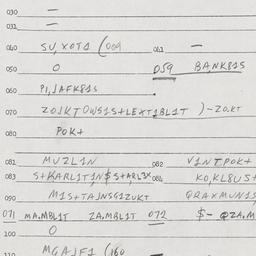 030 —
031 —
040 SU, XOTA (009 041 —
050 0 059 BANK81S
060 PI, JAFK81S
070 ZOJKTOWS1S+LEXT1BL1T )-ZO.KT
080 POK+
081 MUZL1N 082 V1NTPOK+
083 S+KARL1T1N$S+ARL3X 084 KO,KL8US+
090 M1S+TAJNSG1ZUKT QRAXMUN1S
071 MA.MBL1T ZA,MBL1T 072 $- QZA,M
100 0
110 MGAJF1 (160